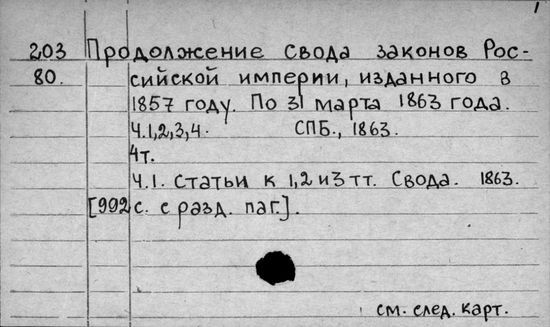 1
203 Продолжение свода законов Рос-
80. сийской империи, изданного в
1857 году. По 31 марта 1863 года.
Ч.1,2,3,4. СПБ., 1863.
4т.
Ч.1. Статьи к 1,2 и 3 тт. Свода. 1863.
[992 с. с разд. паг.].
см. след. карт.